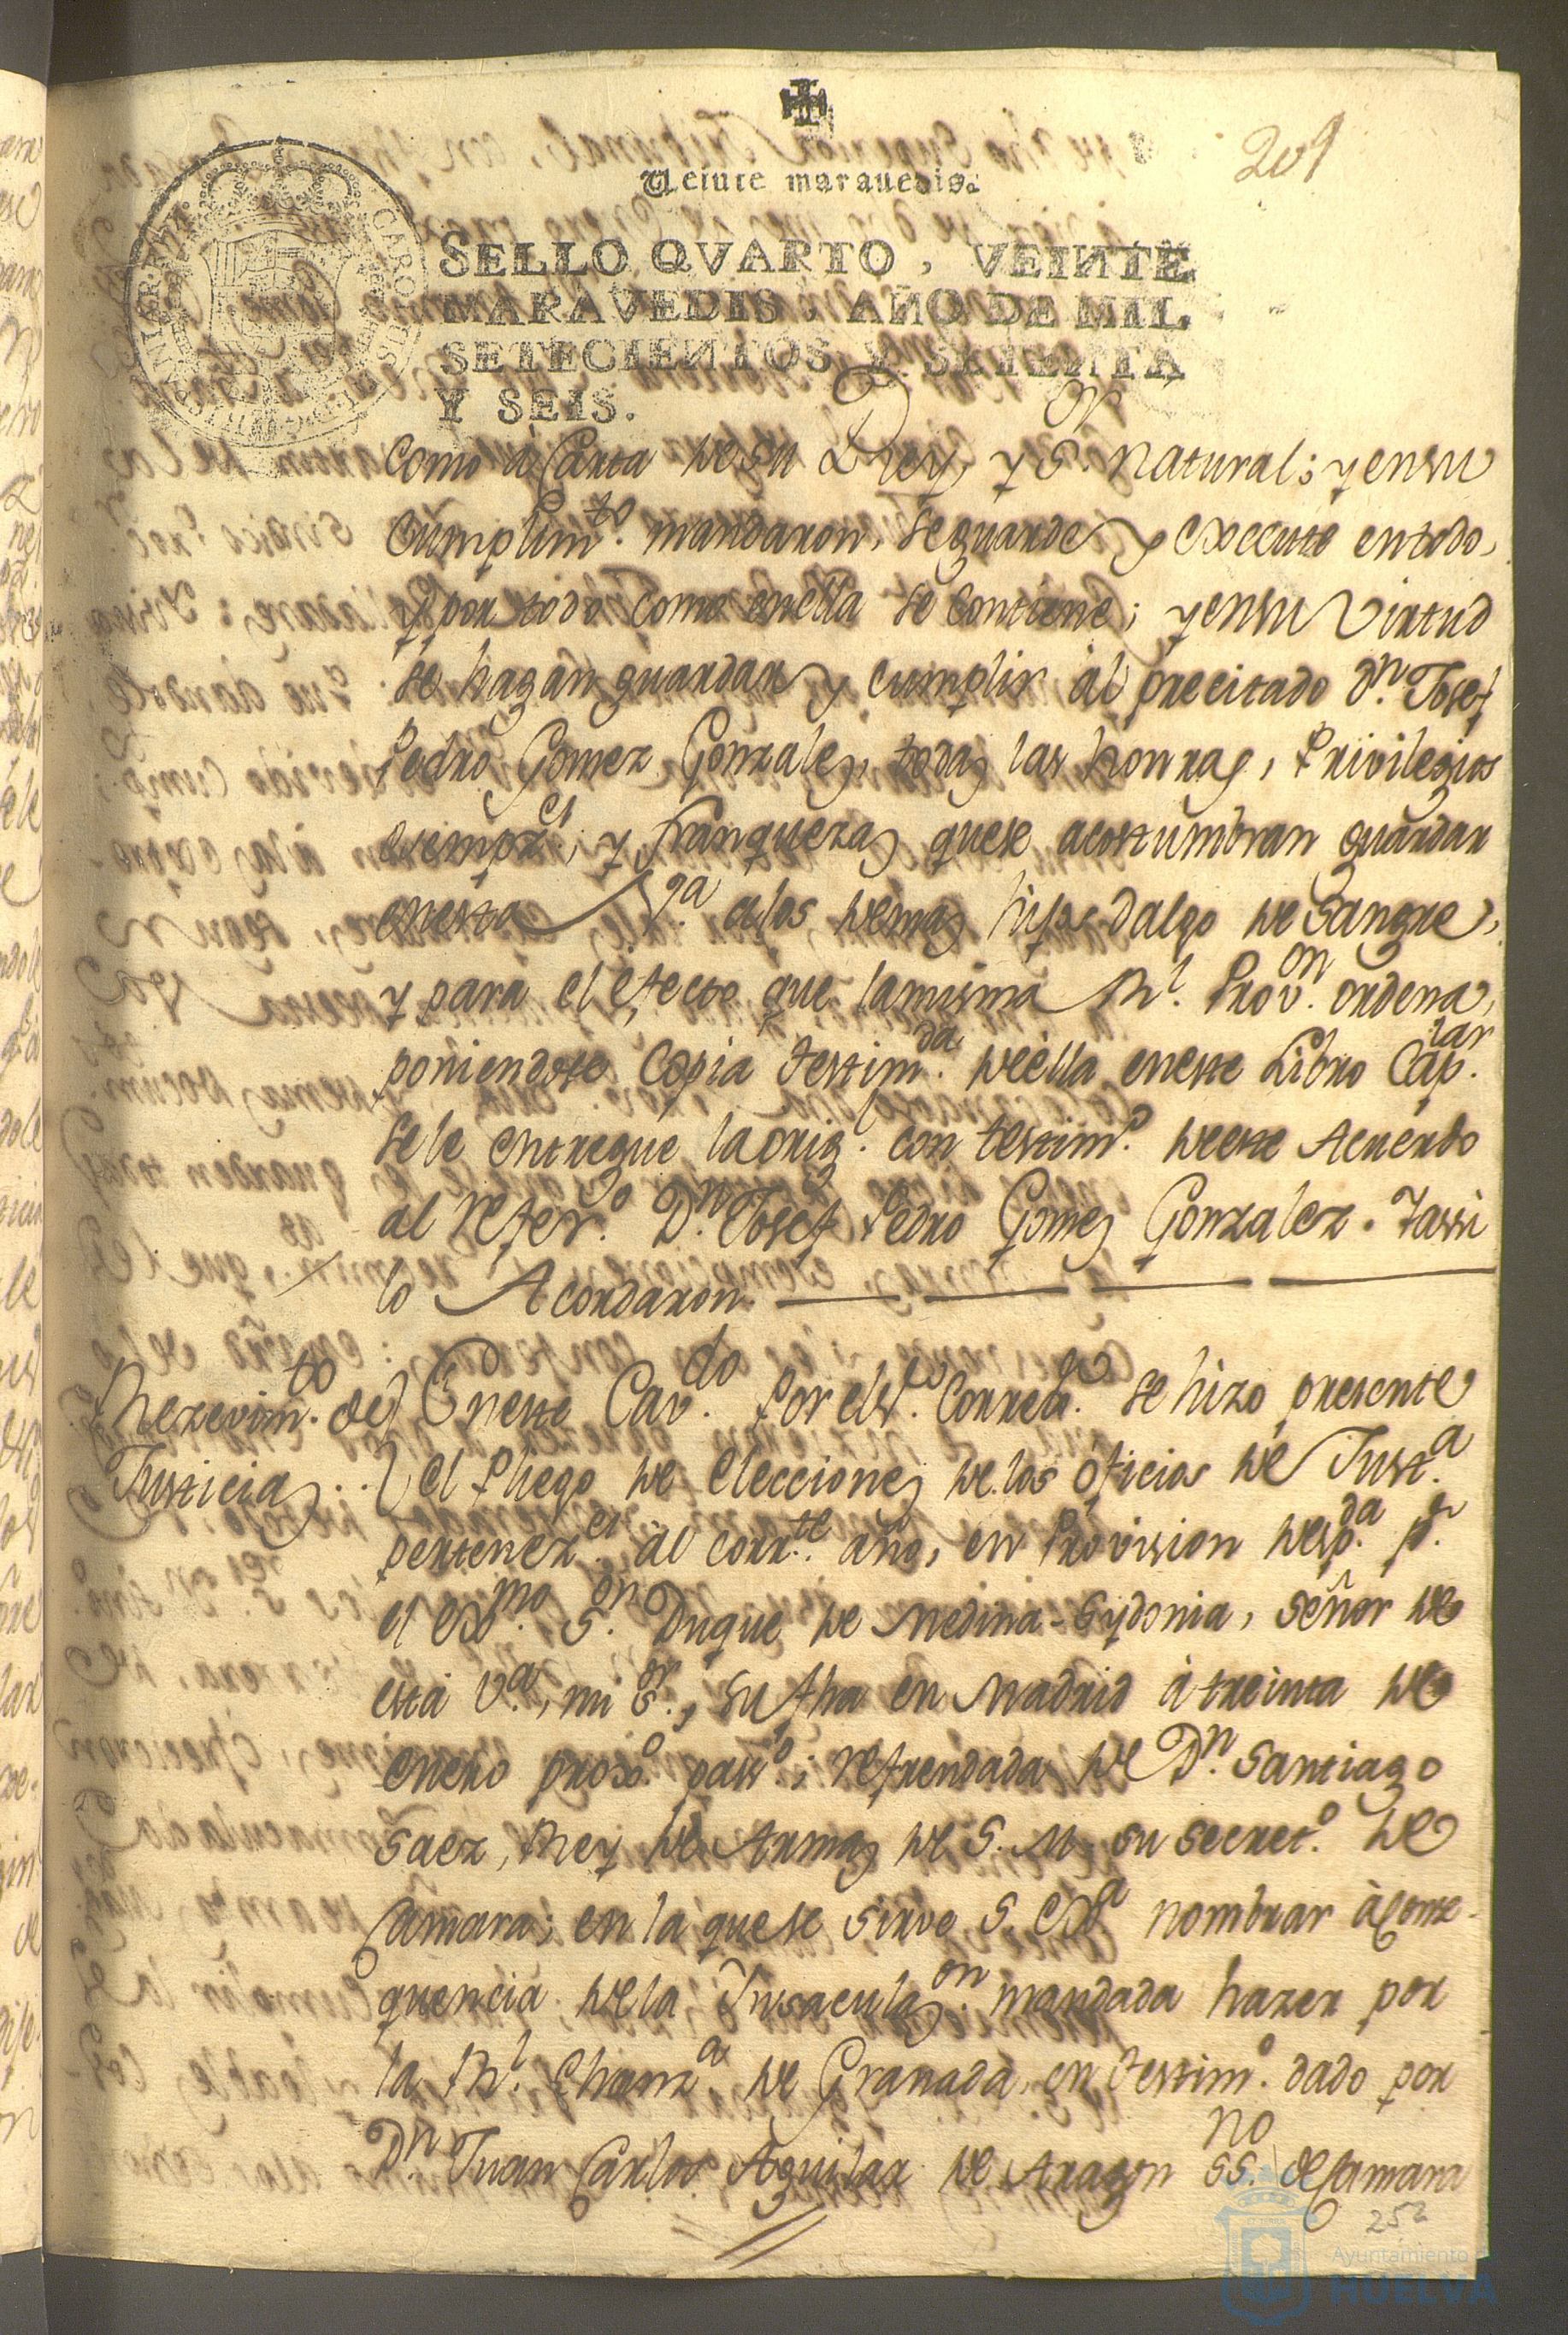 209
Veinte maravedis.
SELLO QVARTO, VEINTE
MARAVEDIS, AÑO DE MIL
SETECIENTOS Y SETENTA
Y SEIS.
como á Carta de su Rey, y S.or natural; y en su
cumplim.to mandaron, se guarde y execute en todo,
y por todo como en ella se contiene; y en su virtud
se hagan guardar y cumplir al precitado d.n Josef
Pedro Gomez Gonzalez, todas las honras, Privilegios
exempz.es, y franquezas que se acostumbran guardar
en esta V.a a los demas hijos dalgo de Sangre,
y para el efecto que la misma R.l Prov.on ordena,
poniendose Copia testim.da de ella en este Libro Cap.lar
se le entregue la orig.l con testim.o de este Acuerdo
al refer.do D.n Josef Pedro Gomez Gonzalez. Y assi
lo Acordaron.
Rezevim.to de
Justicias..
En este Cav.do Por el S.or Correx.or se hizo presente
el Pliego de Elecciones de los oficios de Just.a
pertenez.es al corr.te año, en Provision desp.da p.r
el Exmo. S.or Duque de Medina-Sydonia, señor de
esta V.a, mi S.or, su fha en Madrid à treinta de
enero proxo. pass.o; refrendada de D.n Santiago
Saez, Rey de Armas de S. M. su secret.o de
Camara; en la que se sirve S. Ex.a nombrar à conse-
quencia de la Insaculaz.on mandada hazer por
la R.l Chanz.a de Granada, en testim.o dado por
D.n Juan Carlos Aguilar de Aragon SS.no de Camara
252
Ayuntamiento
HUELVA